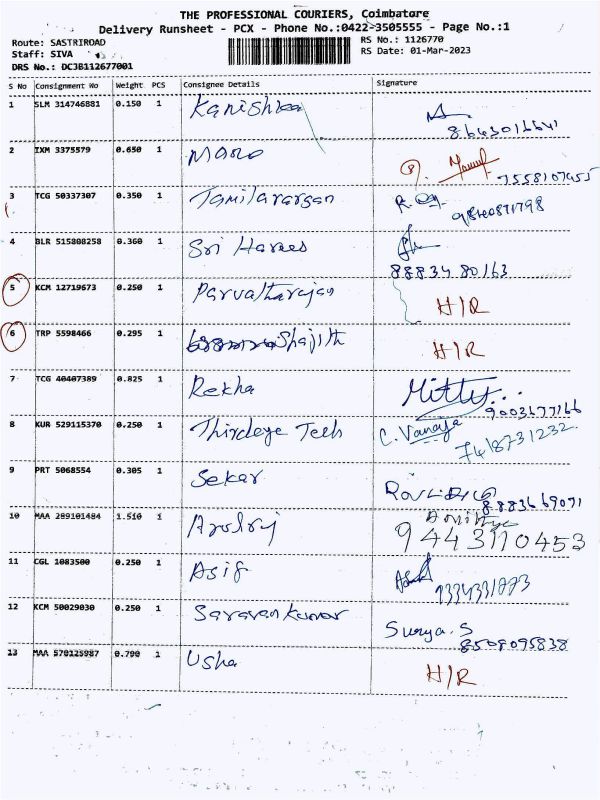 THE PROFESSIONAL COURIERS, Coimbatore
Delivery Runsheet - PCX - Phone No.:0422-3505555 - Page No.:1
Route: SASTRIROAD
RS No.: 1126770
Staff: SIVA
RS Date: 01-Mar-2023
DRS No.: DCJB112677001
S No Consignment No Weight PCS Consignee Details Signature
1 SLM 314746881 0.150 1 Kanishkaa
8643016641
2 IXM 3375579 0.650 1 Mano
7558107455
3 TCG 50337307 0.350 1 Tamilarargan
9840871798
4 BLR 515808258 0.360 1 Sri Harees
88834 80163
5 KCM 12719673 0.250 1 Parvatharajan H/R
6 TRP 5598466 0.295 1 Shajith H/R
7 TCG 40407389 0.825 1 Rekha Mitty...
9003677166
8 KUR 529115370 0.250 1 Thirdeye Tech C. Vanaja
7418731232
9 PRT 5068554 0.305 1 Sekar
8883669071
10 MAA 289101484 1.510 1 Arulraj
9443110453
11 CGL 1083500 0.250 1 Asif
12 KCM 50029030 0.250 1 Saravan kumar Surya. S
8508095838
13 MAA 570125987 0.790 1 Usha H/R